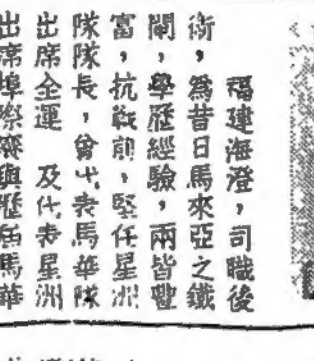 福建海澄，司職後
衛，爲昔日馬來亞之鐵
閘，學歷經驗，兩皆豐
富，抗戰前，堅任星洲
隊隊長，曾代表馬華隊
出席全運　及代表星洲
出席埠際賽與歷屆馬華